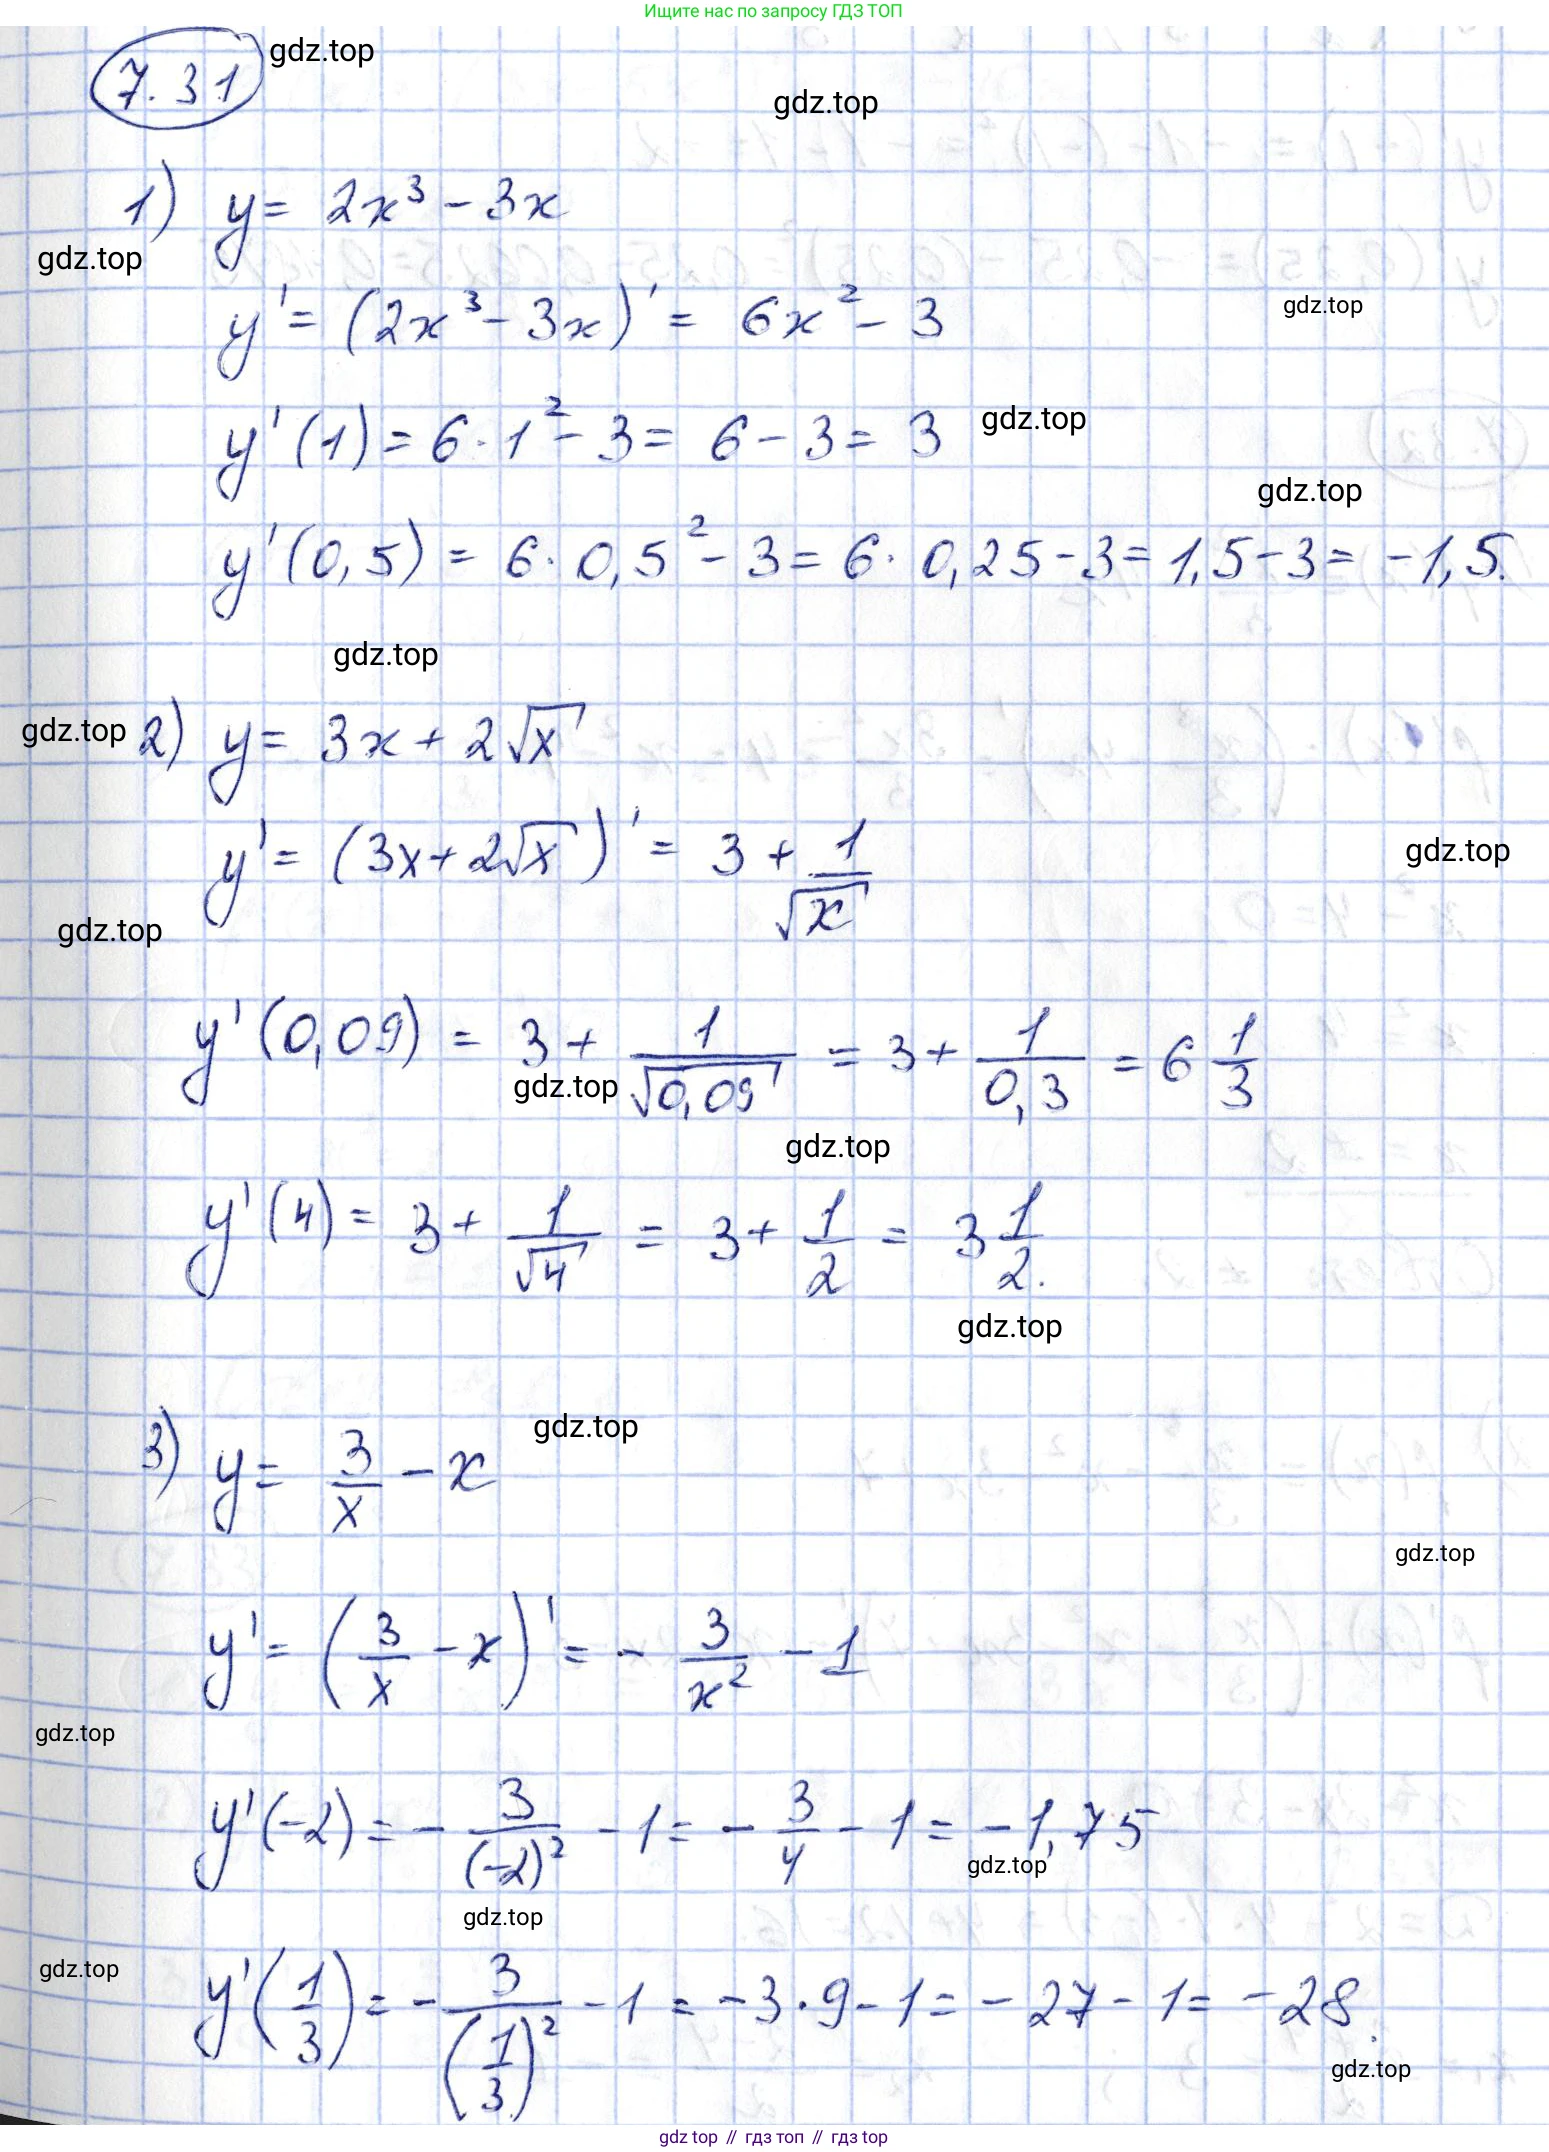 Ищите нас по запросу ГДЗ ТОП
7.31 gdz.top
gdz.top
1) y = 2x³ - 3x
gdz.top
y' = (2x³ - 3x)' = 6x² - 3
gdz.top
y'(1) = 6 · 1² - 3 = 6 - 3 = 3 gdz.top
gdz.top
y'(0,5) = 6 · 0,5² - 3 = 6 · 0,25 - 3 = 1,5 - 3 = -1,5.
gdz.top
gdz.top 2) y = 3x + 2√x
y' = (3x + 2√x)' = 3 + 1/√x
gdz.top
gdz.top
y'(0,09) = 3 + 1/√0,09 = 3 + 1/0,3 = 6 1/3
gdz.top
gdz.top
y'(4) = 3 + 1/√4 = 3 + 1/2 = 3 1/2.
gdz.top
gdz.top
3) y = 3/x - x
gdz.top
y' = (3/x - x)' = - 3/x² - 1
gdz.top
y'(-2) = - 3/(-2)² - 1 = - 3/4 - 1 = -1,75
gdz.top
gdz.top
gdz.top
y'(1/3) = - 3/(1/3)² - 1 = -3 · 9 - 1 = -27 - 1 = -28.
gdz.top
gdz top // гдз топ // гдз top